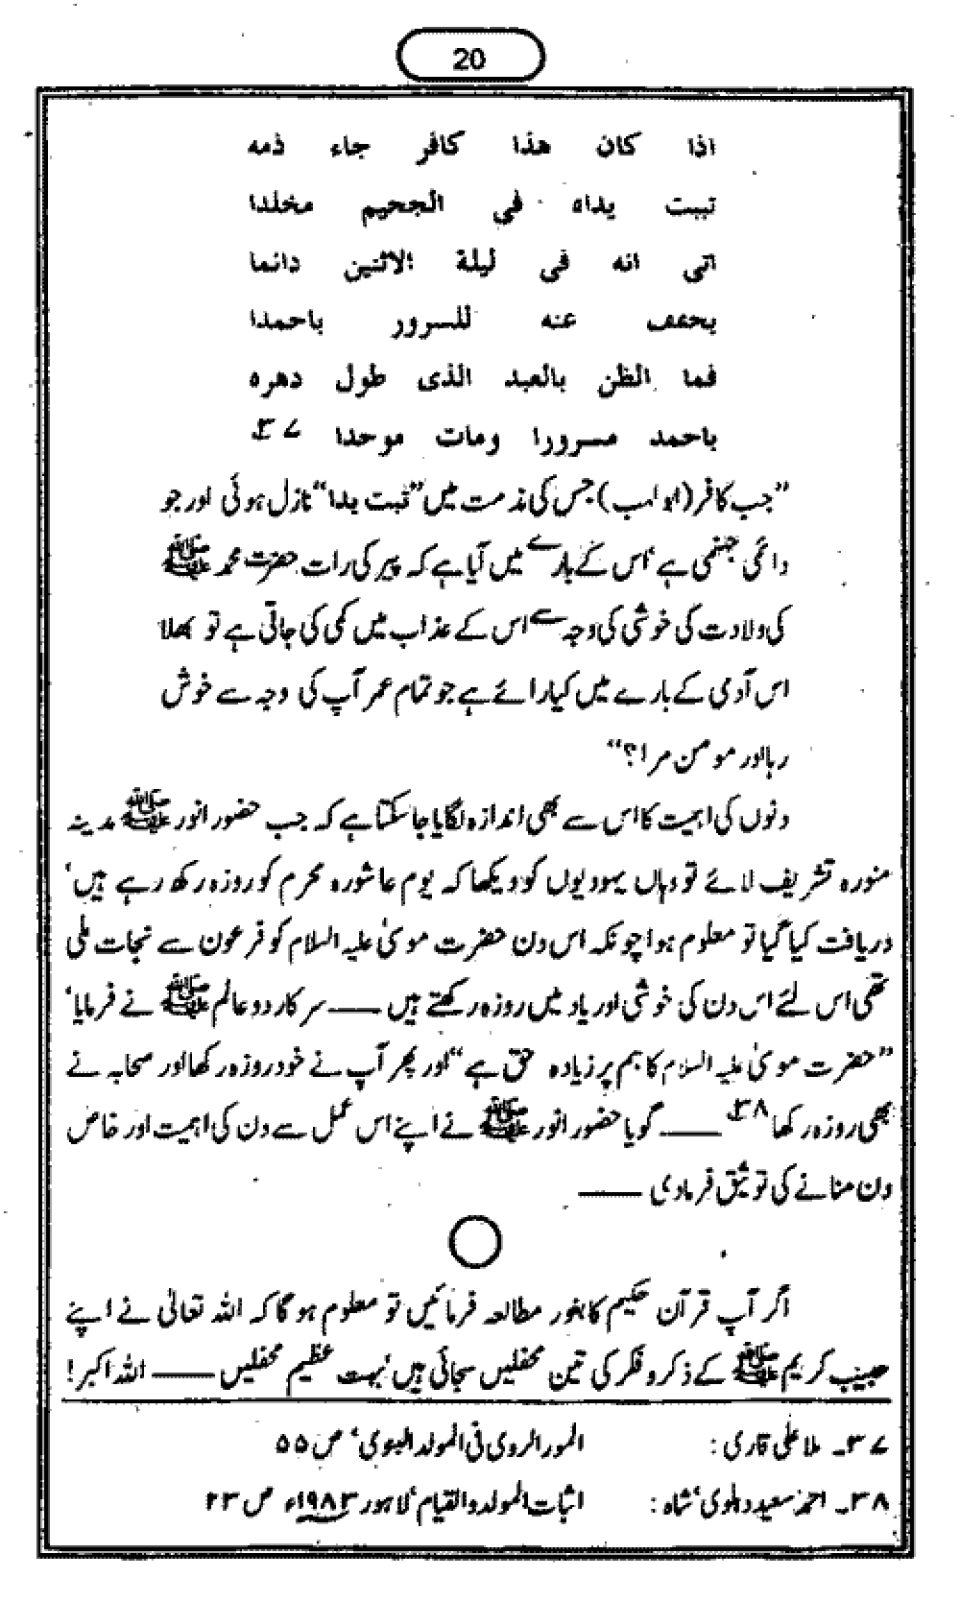 20
اذا کان هذا کافر جاء ذمه
تببت یداه فی الجحیم مخلدا
اتی انه فی لیلة الاثنین دائما
یخفف عنه للسرور باحمدا
فما الظن بالعبد الذی طول دهره
باحمد مسرورا ومات موحدا ۳۷
”جب کافر (ابو لہب) جس کی مذمت میں ”تبت یدا“ نازل ہوئی اور جو
دائمی جہنمی ہے‘ اس کے بارے میں آیا ہے کہ پیر کی رات حضرت محمد ﷺ
کی ولادت کی خوشی کی وجہ سے اس کے عذاب میں کمی کی جاتی ہے تو بھلا
اس آدمی کے بارے میں کیا رائے ہے جو تمام عمر آپ کی وجہ سے خوش
رہا اور مومن مرا؟“
دنوں کی اہمیت کا اس سے بھی اندازہ لگایا جا سکتا ہے کہ جب حضور انور ﷺ مدینہ
منورہ تشریف لائے تو وہاں یہودیوں کو دیکھا کہ یوم عاشورہ محرم کو روزہ رکھ رہے ہیں‘
دریافت کیا گیا تو معلوم ہوا چونکہ اس دن حضرت موسیٰ علیہ السلام کو فرعون سے نجات ملی
تھی اس لئے اس دن کی خوشی اور یاد میں روزہ رکھتے ہیں —— سرکار دو عالم ﷺ نے فرمایا‘
”حضرت موسیٰ علیہ السلام کا ہم پر زیادہ حق ہے“ اور پھر آپ نے خود روزہ رکھا اور صحابہ نے
بھی روزہ رکھا ۳۸ —— گویا حضور انور ﷺ نے اپنے اس عمل سے دن کی اہمیت اور خاص
دن منانے کی توثیق فرما دی ——
اگر آپ قرآن حکیم کا بغور مطالعہ فرمائیں تو معلوم ہو گا کہ اللہ تعالیٰ نے اپنے
حبیب کریم ﷺ کے ذکر و فکر کی تین محفلیں سجائی ہیں‘ بہت عظیم محفلیں —— اللہ اکبر!
۳۷۔ ملا علی قاری : المورد الروی فی المولد النبوی‘ ص ۵۵
۳۸۔ احمد سعید دہلوی‘ شاہ : اثبات المولد والقیام‘ لاہور ۱۹۸۳ء ص ۲۳